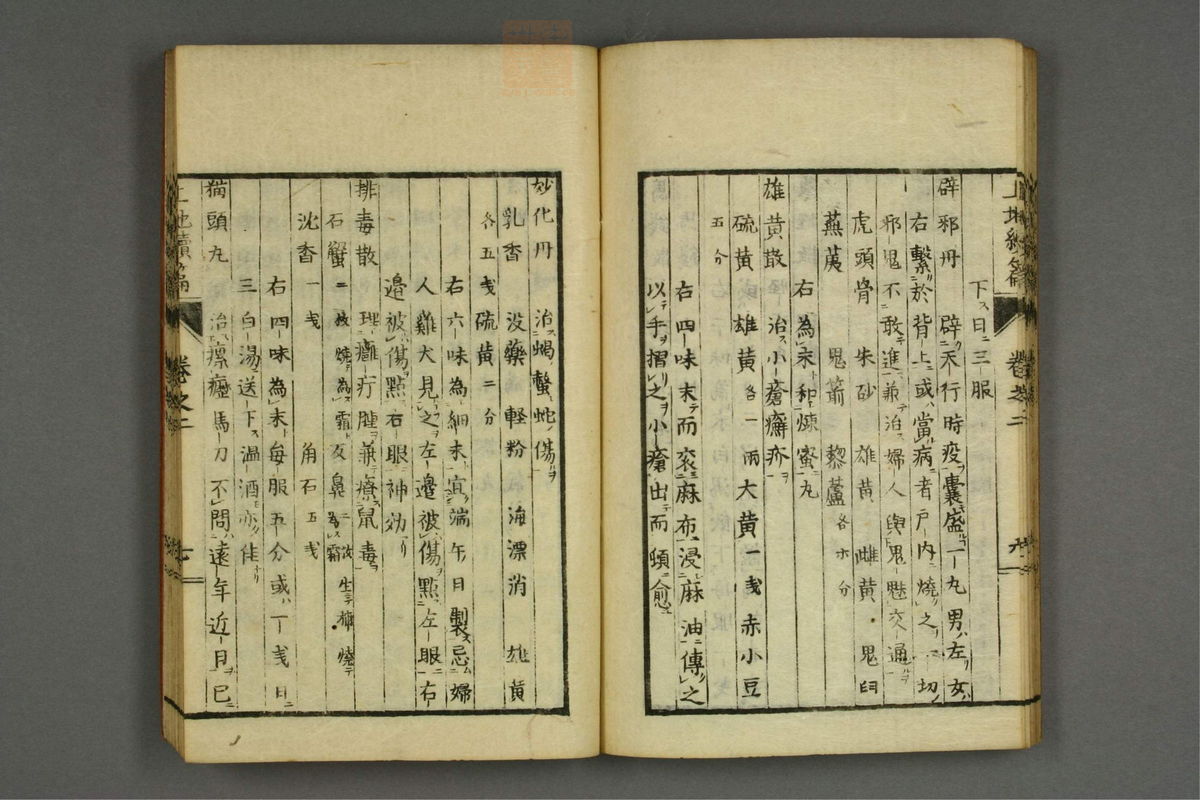 下ス日ニ三ー服
辟邪丹 辟リ天行時疫ヲ嚢盛ルコ一ー丸男ハ左リ女ハ
右繫リ於背ー上ニ或ハ當ル病ニ者戸ー内ニ燒リ之ヲ一ー切ノ
邪ー鬼不ニ敢テ進ニ兼テ治ス婦ー人與ト鬼ー魅交ー通ルヲ
虎頭骨 朱砂 雄黄 雌黄 鬼臼
蕪荑 鬼箭 藜蘆各ホ分
右為末ト和煉蜜ニ丸
雄黄散 治ス小ー瘡癬疥ヲ
硫黄 雄黄各一兩 大黄一戔 赤小豆
五分
右四ー味末テ而衮ニ麻布ニ浸シ麻油ニ傅リ之
以テ手ヲ摺リ之ヲ小ー瘡出テ而頓ニ愈ユ
卷之二
妙化丹 治ス蝎螫蛇ノ傷ヲ
乳香 没藥 軽粉 海漂消 雄黄
各五戔 硫黄二分
右六味為細末ト宜ク端午ノ日製ス忌ム婦
人雞犬見ルヿ之ヲ左ー邉被レハ傷ヲ點ニ左ー眼ニ右
邉被レハ傷ヲ點右ー眼ニ神効アリ
排毒散 理ス癰ー疔腫ヲ兼テ療ス鼠毒ヲ
石蟹二枚燒為霜 反鼻二枚為霜 生柿燒テ
沈香一戔 角石五戔
右四ー味為末ト毎ー服五分或ハ一戔日ニ
三白湯ニ送ー下ス温酒モ亦タ佳ナリ
猫頭丸 治ス瘰癧馬ー刀不問ハ遠ー年近ー月ヲ已ニ
卷之二
七